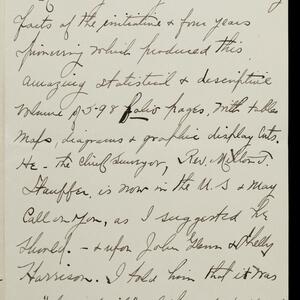 facts of the initiative & four years
pioneering which produced this
amazing statistical & descriptive
volume of 598 folio pages, with tables
maps, diagrams & graphic display cuts.
He - the chief surveyor, Rev. Milton T.
Stauffer, is now in the U S & may
call on you, as I suggested he
should - & upon John Glenn & Shelby
Harrison. I told him that it was